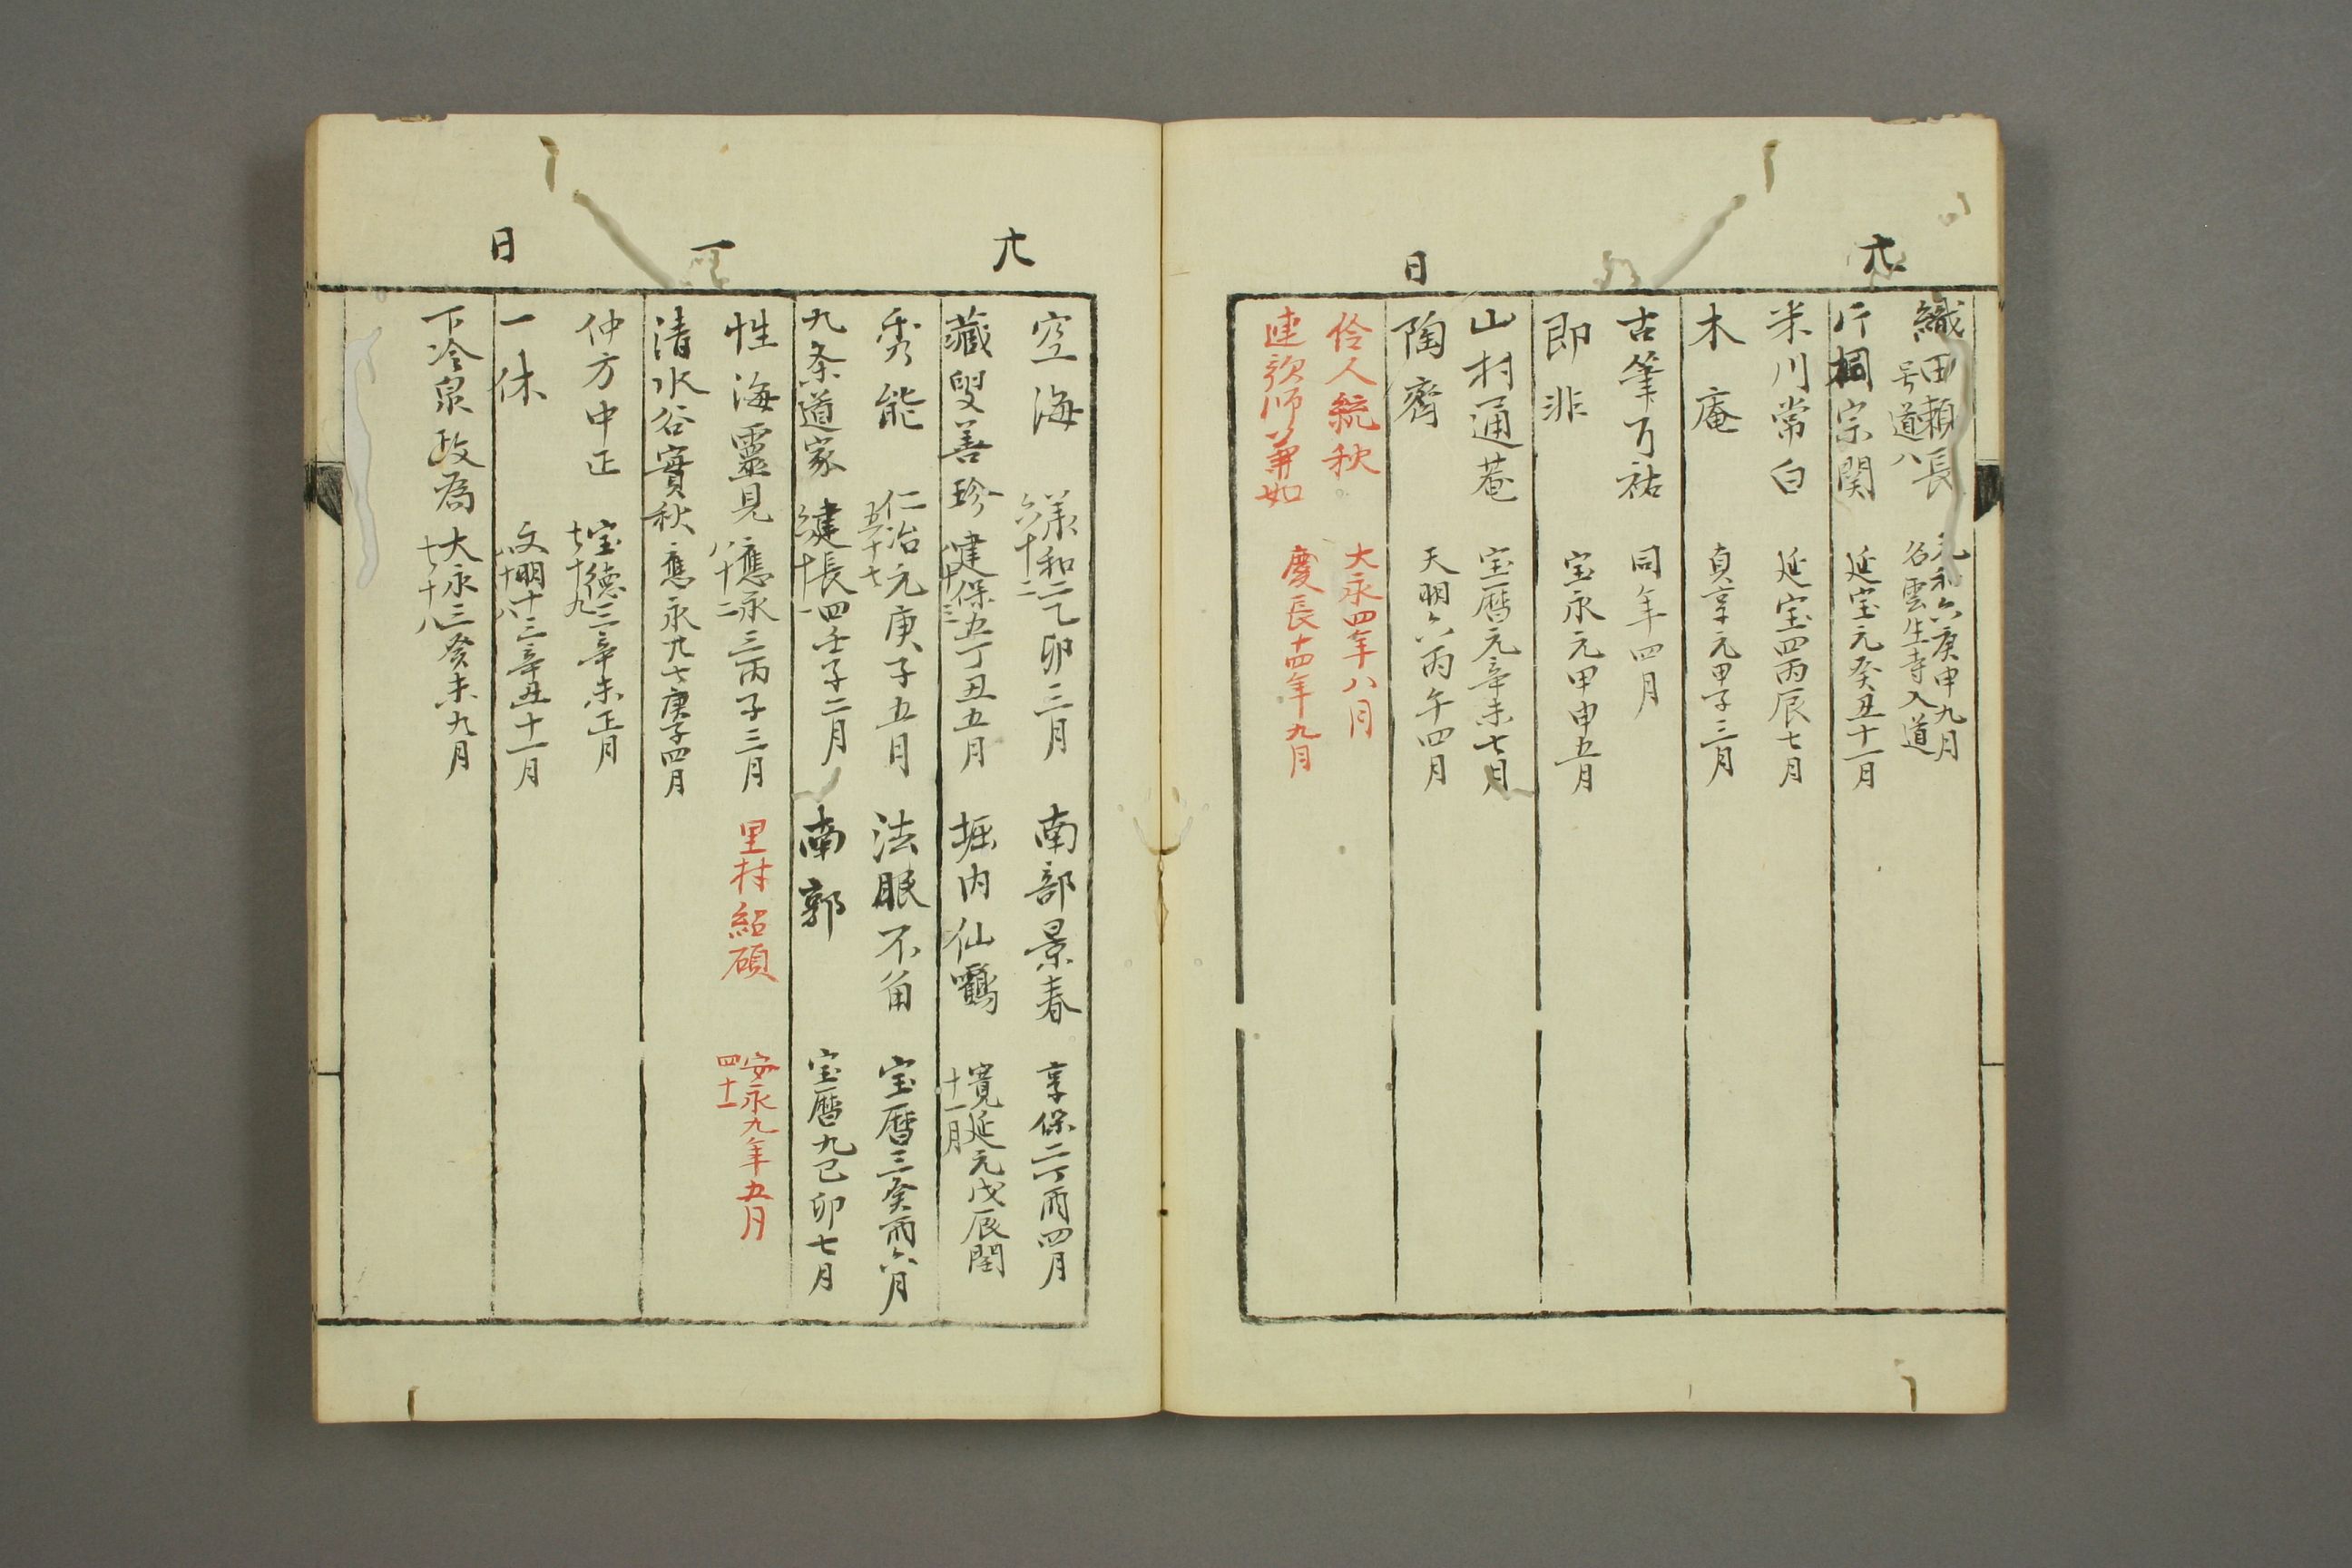 廿
日
織田頼長
号道八
元和六庚申九月
谷雲生寺入道
片桐宗関
延宝元癸丑十一月
米川常白
延宝四丙辰七月
木庵
貞享元甲子三月
古筆了祐
同年四月
即非
宝永元甲申五月
山村通菴
宝暦元辛未七月
陶齊
天明六丙午四月
伶人統秋
大永四年八月
連歌師兼如
慶長十四年九月
廿
一
日
空海
羕和二乙卯三月
六十二
南部景春
享保二丁酉四月
藏叟善珍
建保五丁丑五月
八十三
堀内仙鸖
寛延元戊辰閏
十一月
秀能
仁治元庚子五月
五十七
法眼不角
宝暦三癸酉六月
九条道家
建長四壬子二月
六十一
南郭
宝暦九己卯七月
性海靈見
應永三丙子三月
八十二
里村紹碩
安永九年五月
四十一
清水谷實秋
應永廿七庚子四月
仲方中正
宝德三辛未正月
七十九
一休
文明十三辛丑十一月
八十八
下冷泉政為
大永三癸未九月
七十八